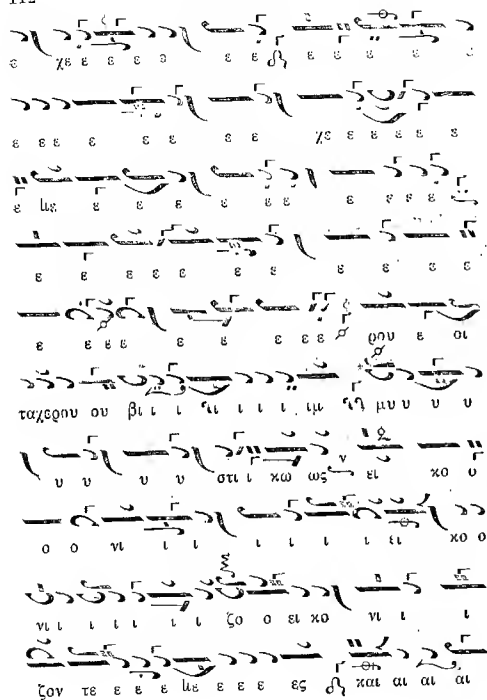 ε χε ε ε ε ε ε ε ε ε ε ε ε
ε ε ε ε ε ε ε ε χε ε ε ε ε ε
ε με ε ε ε ε ε ε ε ε ε ε
ε ε ε ε ε ε ε ε ε ε ε ε
ε ε ε ε ε ε ε ε ε ρου ε οι
ταχερου ου βι ι ι ι ι ι ι μυ υ υ υ
υ υ υ υ στι ι κω ως ει κο ο
ο ο νι ι ι ι ι ι ι ι ει κο ο
νι ι ι ι ι ι ζο ο ει κο νι ι ι
ζον τε ε ε ε με ε ε ε ες και αι αι αι